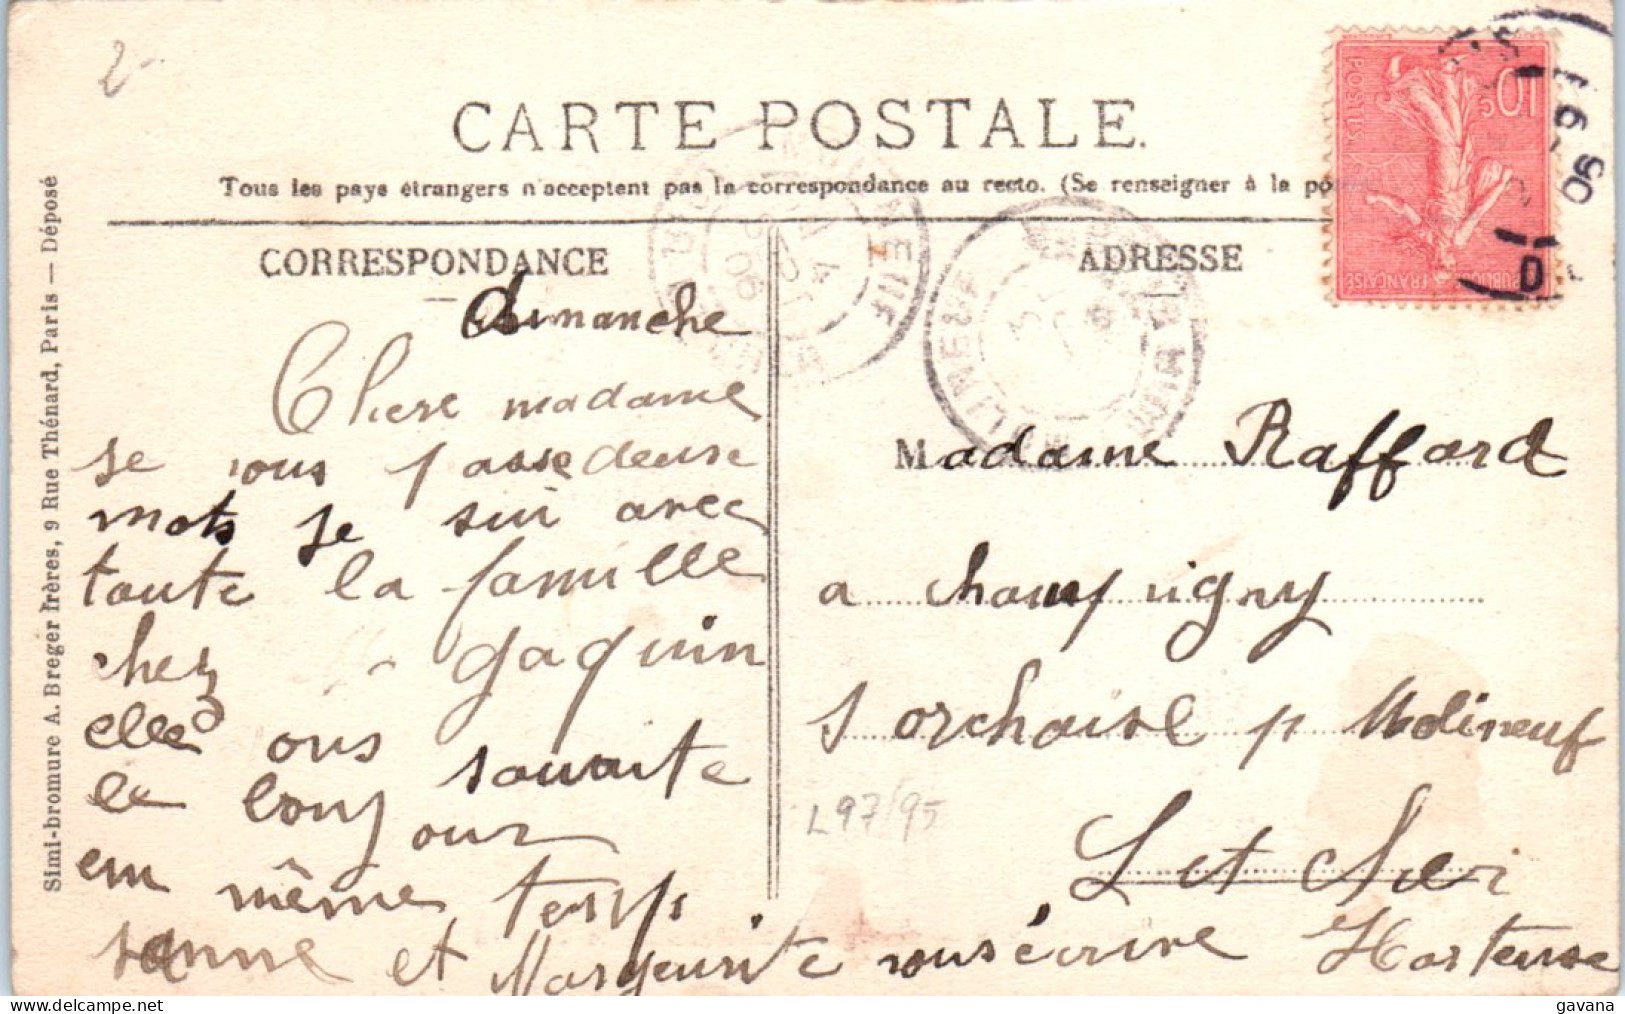 2-
CARTE POSTALE.
Tous les pays étrangers n'acceptent pas la correspondance au recto. (Se renseigner à la po
CORRESPONDANCE
ADRESSE
Simi-bromure A. Breger frères, 9 Rue Thénard, Paris — Déposé
10c
POSTES
FRANÇAISE
MOLINEUF
Dimanche
Chere madame
je vous passe deux
mots je sui avec
toute la famille
chez gaquin
elle vous souaite
le bonjour
em même temps
sanne et Margurite vous écrire Hortense
Madame Raffard
a champigny
s orchaise p Molineuf
L et cher
L97/95
gavana